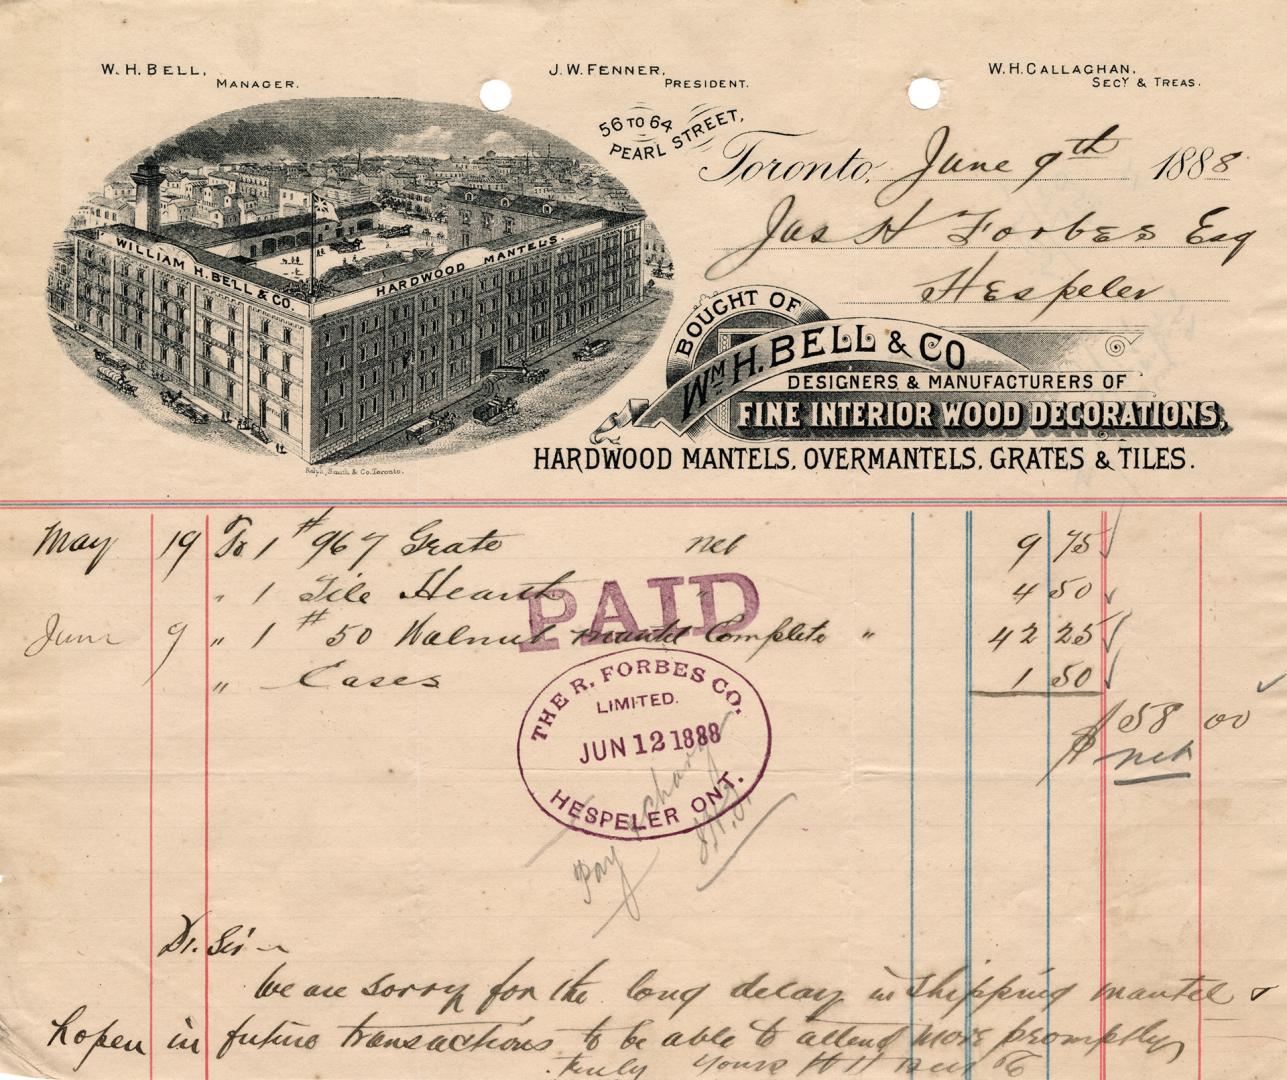 W. H. BELL,
MANAGER.
J. W. FENNER,
PRESIDENT.
W. H. CALLAGHAN,
SECY & TREAS.
56 TO 64
PEARL STREET,
Toronto, June 9th 1888
Jas H Forbes Esq
Hespeler
WILLIAM H. BELL & CO.
HARDWOOD MANTELS.
Rolph, Smith & Co. Toronto.
BOUGHT OF
WM H. BELL & CO
DESIGNERS & MANUFACTURERS OF
FINE INTERIOR WOOD DECORATIONS,
HARDWOOD MANTELS, OVERMANTELS, GRATES & TILES.
May 19 To 1 #967 Grate net 9 75
" 1 Tile Hearth " 4 50
PAID
June 9 " 1 #50 Walnut mantel Complete " 42 25
" Cases 1 50
$58 00
net
THE R. FORBES CO.
LIMITED.
JUN 12 1888
HESPELER ONT.
Pay & charge
Dr. Sir
We are sorry for the long delay in shipping mantel &
hopen in future transactions to be able to attend more promptly
truly yours W H Bell & Co